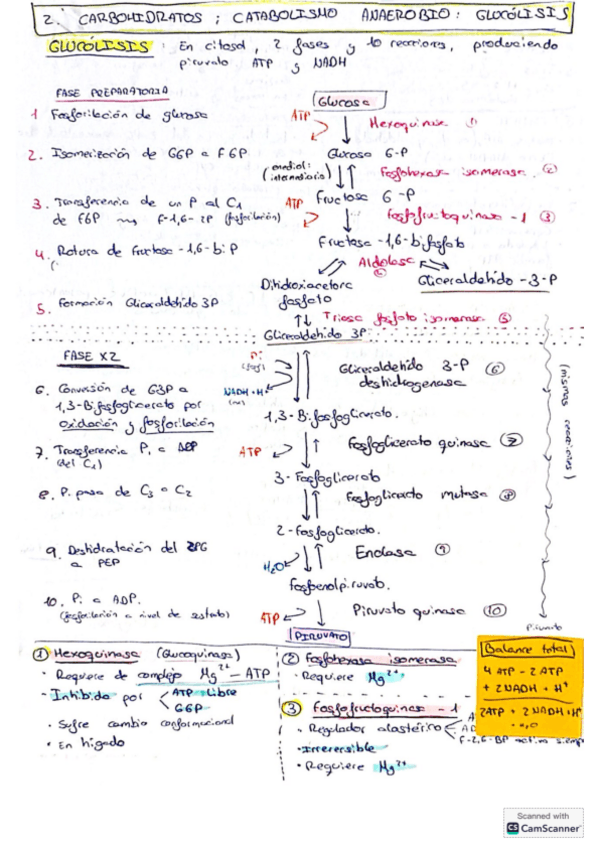 2. CARBOHIDRATOS ; CATABOLISMO ANAEROBIO : GLUCÓLISIS
GLUCÓLISIS : En citosol, 2 fases y 10 reacciones, produciendo
piruvato ATP y NADH
FASE PREPARATORIA
Glucosa
1 Fosforilación de glucosa
ATP
Hexoquinasa 1
2. Isomerización de G6P a F6P
Glucosa 6-P
(enediol:
intermediario)
Fosfohexosa isomerasa. 2
3. Transferencia de un P al C1
de F6P → F-1,6-2P (fosforilación)
ATP
Fructosa 6-P
Fosfofructoquinasa-1 3
4. Rotura de Fructosa-1,6-bi P
Fructosa-1,6-bifosfato
Aldolasa
Dihidroxiacetona
fosfato
Gliceraldehído-3-P
5. Formación Gliceraldehído 3P
Triosa fosfato isomerasa 5
Gliceraldehído 3P
FASE X2
Pi
Gliceraldehído 3-P
deshidrogenasa
6
(mismas reacciones)
6. Conversión de G3P a
1,3-Bifosfoglicerato por
oxidación y fosforilación
NADH+H+
1,3-Bifosfoglicerato.
7. Transferencia Pi a ADP
(del C1)
ATP
Fosfoglicerato quinasa 7
3-Fosfoglicerato
8. P. pasa de C3 a C2
Fosfoglicerato mutasa 8
2-Fosfoglicerato.
9. Deshidratación del 2PG
a PEP
H2O
Enolasa 9
fosfoenolpiruvato.
10. Pi a ADP.
(fosforilación a nivel de sustrato)
ATP
Piruvato quinasa 10
PIRUVATO
Piruvato
1 Hexoquinasa (Glucoquinasa)
· Requiere de complejo Mg2+ - ATP
- Inhibida por
ATP libre
G6P
· Sufre cambio conformacional
· En hígado
2 Fosfohexosa isomerasa
· Requiere Mg2+
3 Fosfofructoquinasa-1
· Regulador alostérico
F-2,6-BP activa siemp
· Irreversible
· Requiere Mg2+
Balance total
4 ATP - 2 ATP
+ 2 NADH + H+
2ATP + 2 NADH+H+
Scanned with
CS CamScanner